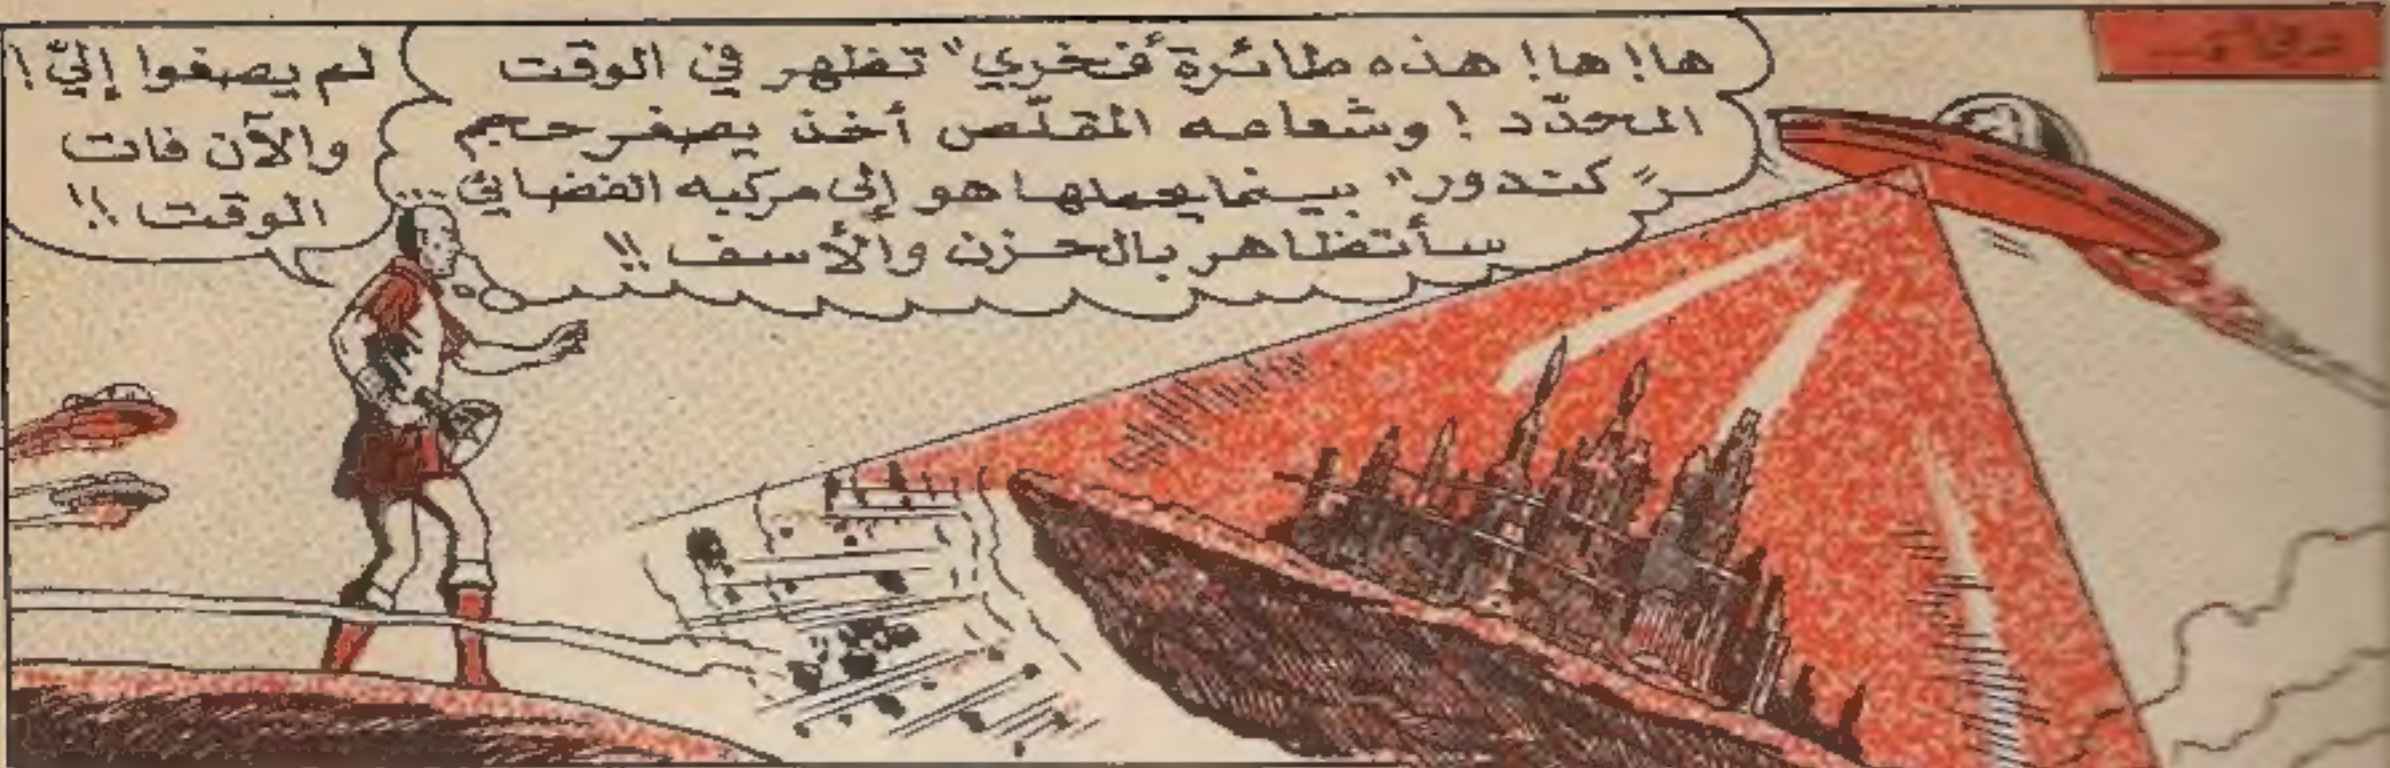 ها! ها! هذه طائرة "فخري" تظهر في الوقت
المحدّد! وشعاعه المقلّص أخذ يصغر حجم
"كندور" بينما يحملها هو إلى مركبه الفضائي...
سأتظاهر بالحزن والأسف!!
لم يصغوا إليّ!
والآن فات
الوقت!!